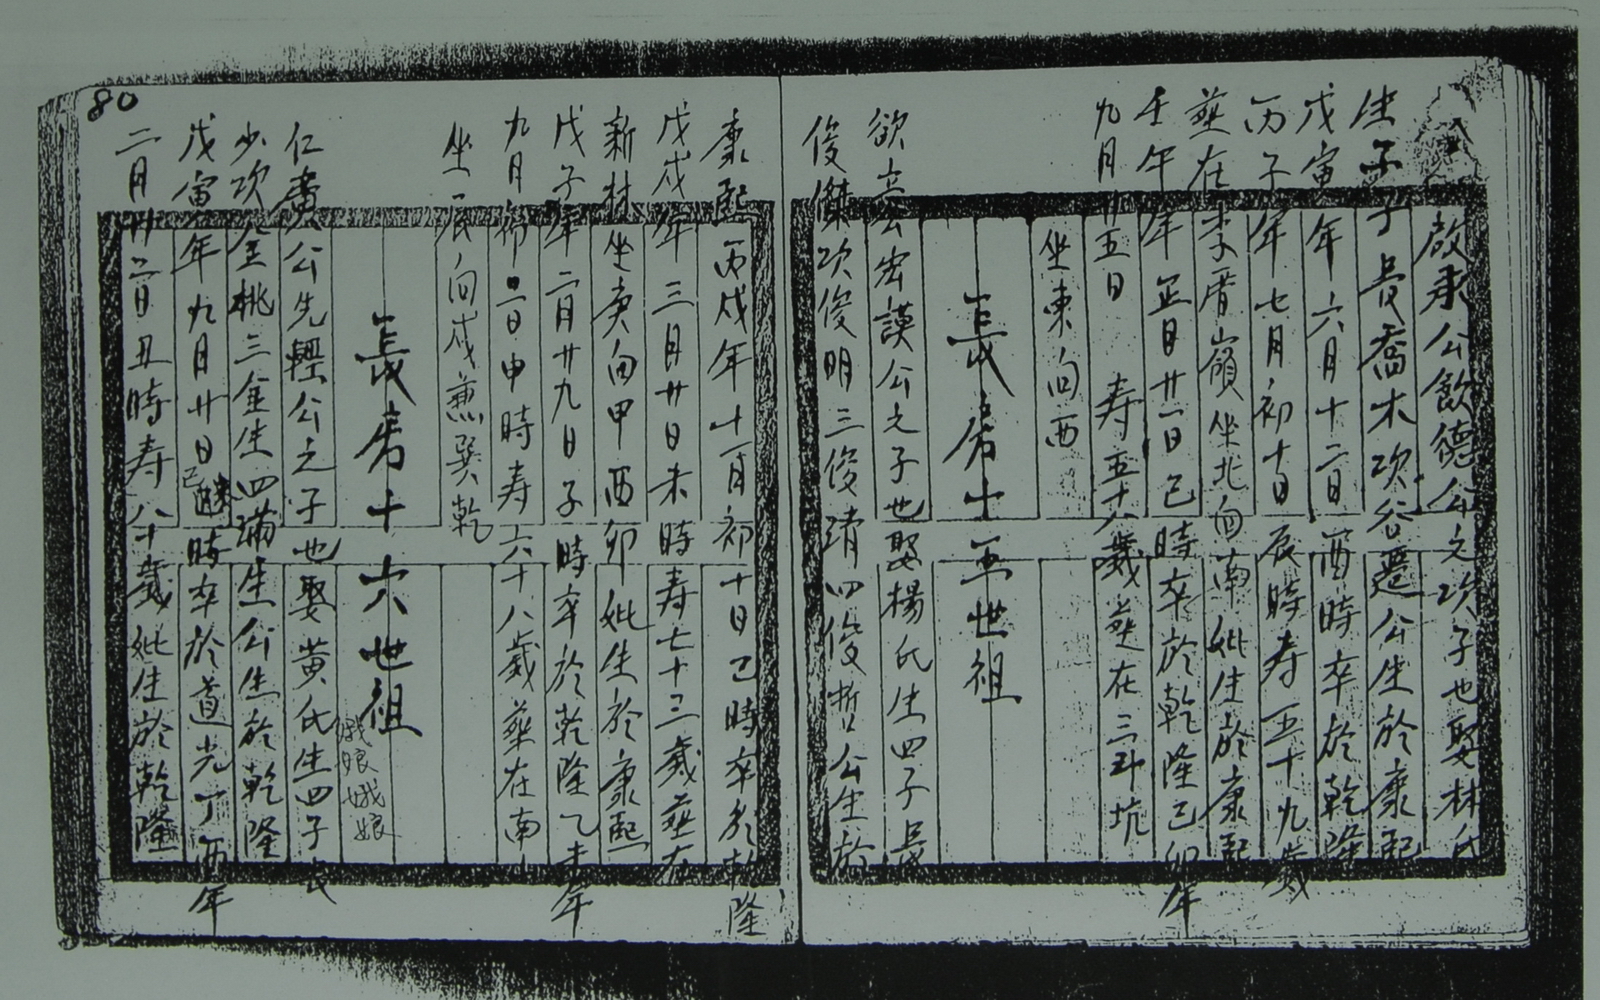 啟承公飲德公之次子也娶林氏
生子子長喬木次谷遷公生於康熙
戊寅年六月十二日酉時卒於乾隆
丙子年七月初十日辰時寿五十九歲
葬在李厝嶺坐北向南妣生於康熙
壬午年正月廿一日己時卒於乾隆己卯年
九月廿五日 寿五十八歲葬在三斗坑
坐東向西
長房十五世祖
欲章公宏謨公之子也娶楊氏生四子長
俊傑次俊明三俊清四俊哲公生於
康熙丙戌年十一月初十日己時卒於乾隆
戊戌年三月廿日未時寿七十三歲葬在
新林坐庚向甲酉卯妣生於康熙
戊子年二月廿九日子時卒於乾隆乙未年
九月初二日申時寿六十八歲葬在南山
坐辰向戌兼巽乾
長房十六世祖
娥娘娥娘
仁廣公先輕公之子也娶黃氏生四子長
少次全桃三金生四滿生公生於乾隆
戊寅年九月廿日己時卒於道光丁酉年
二月廿二日丑時寿八十歲妣生於乾隆
80